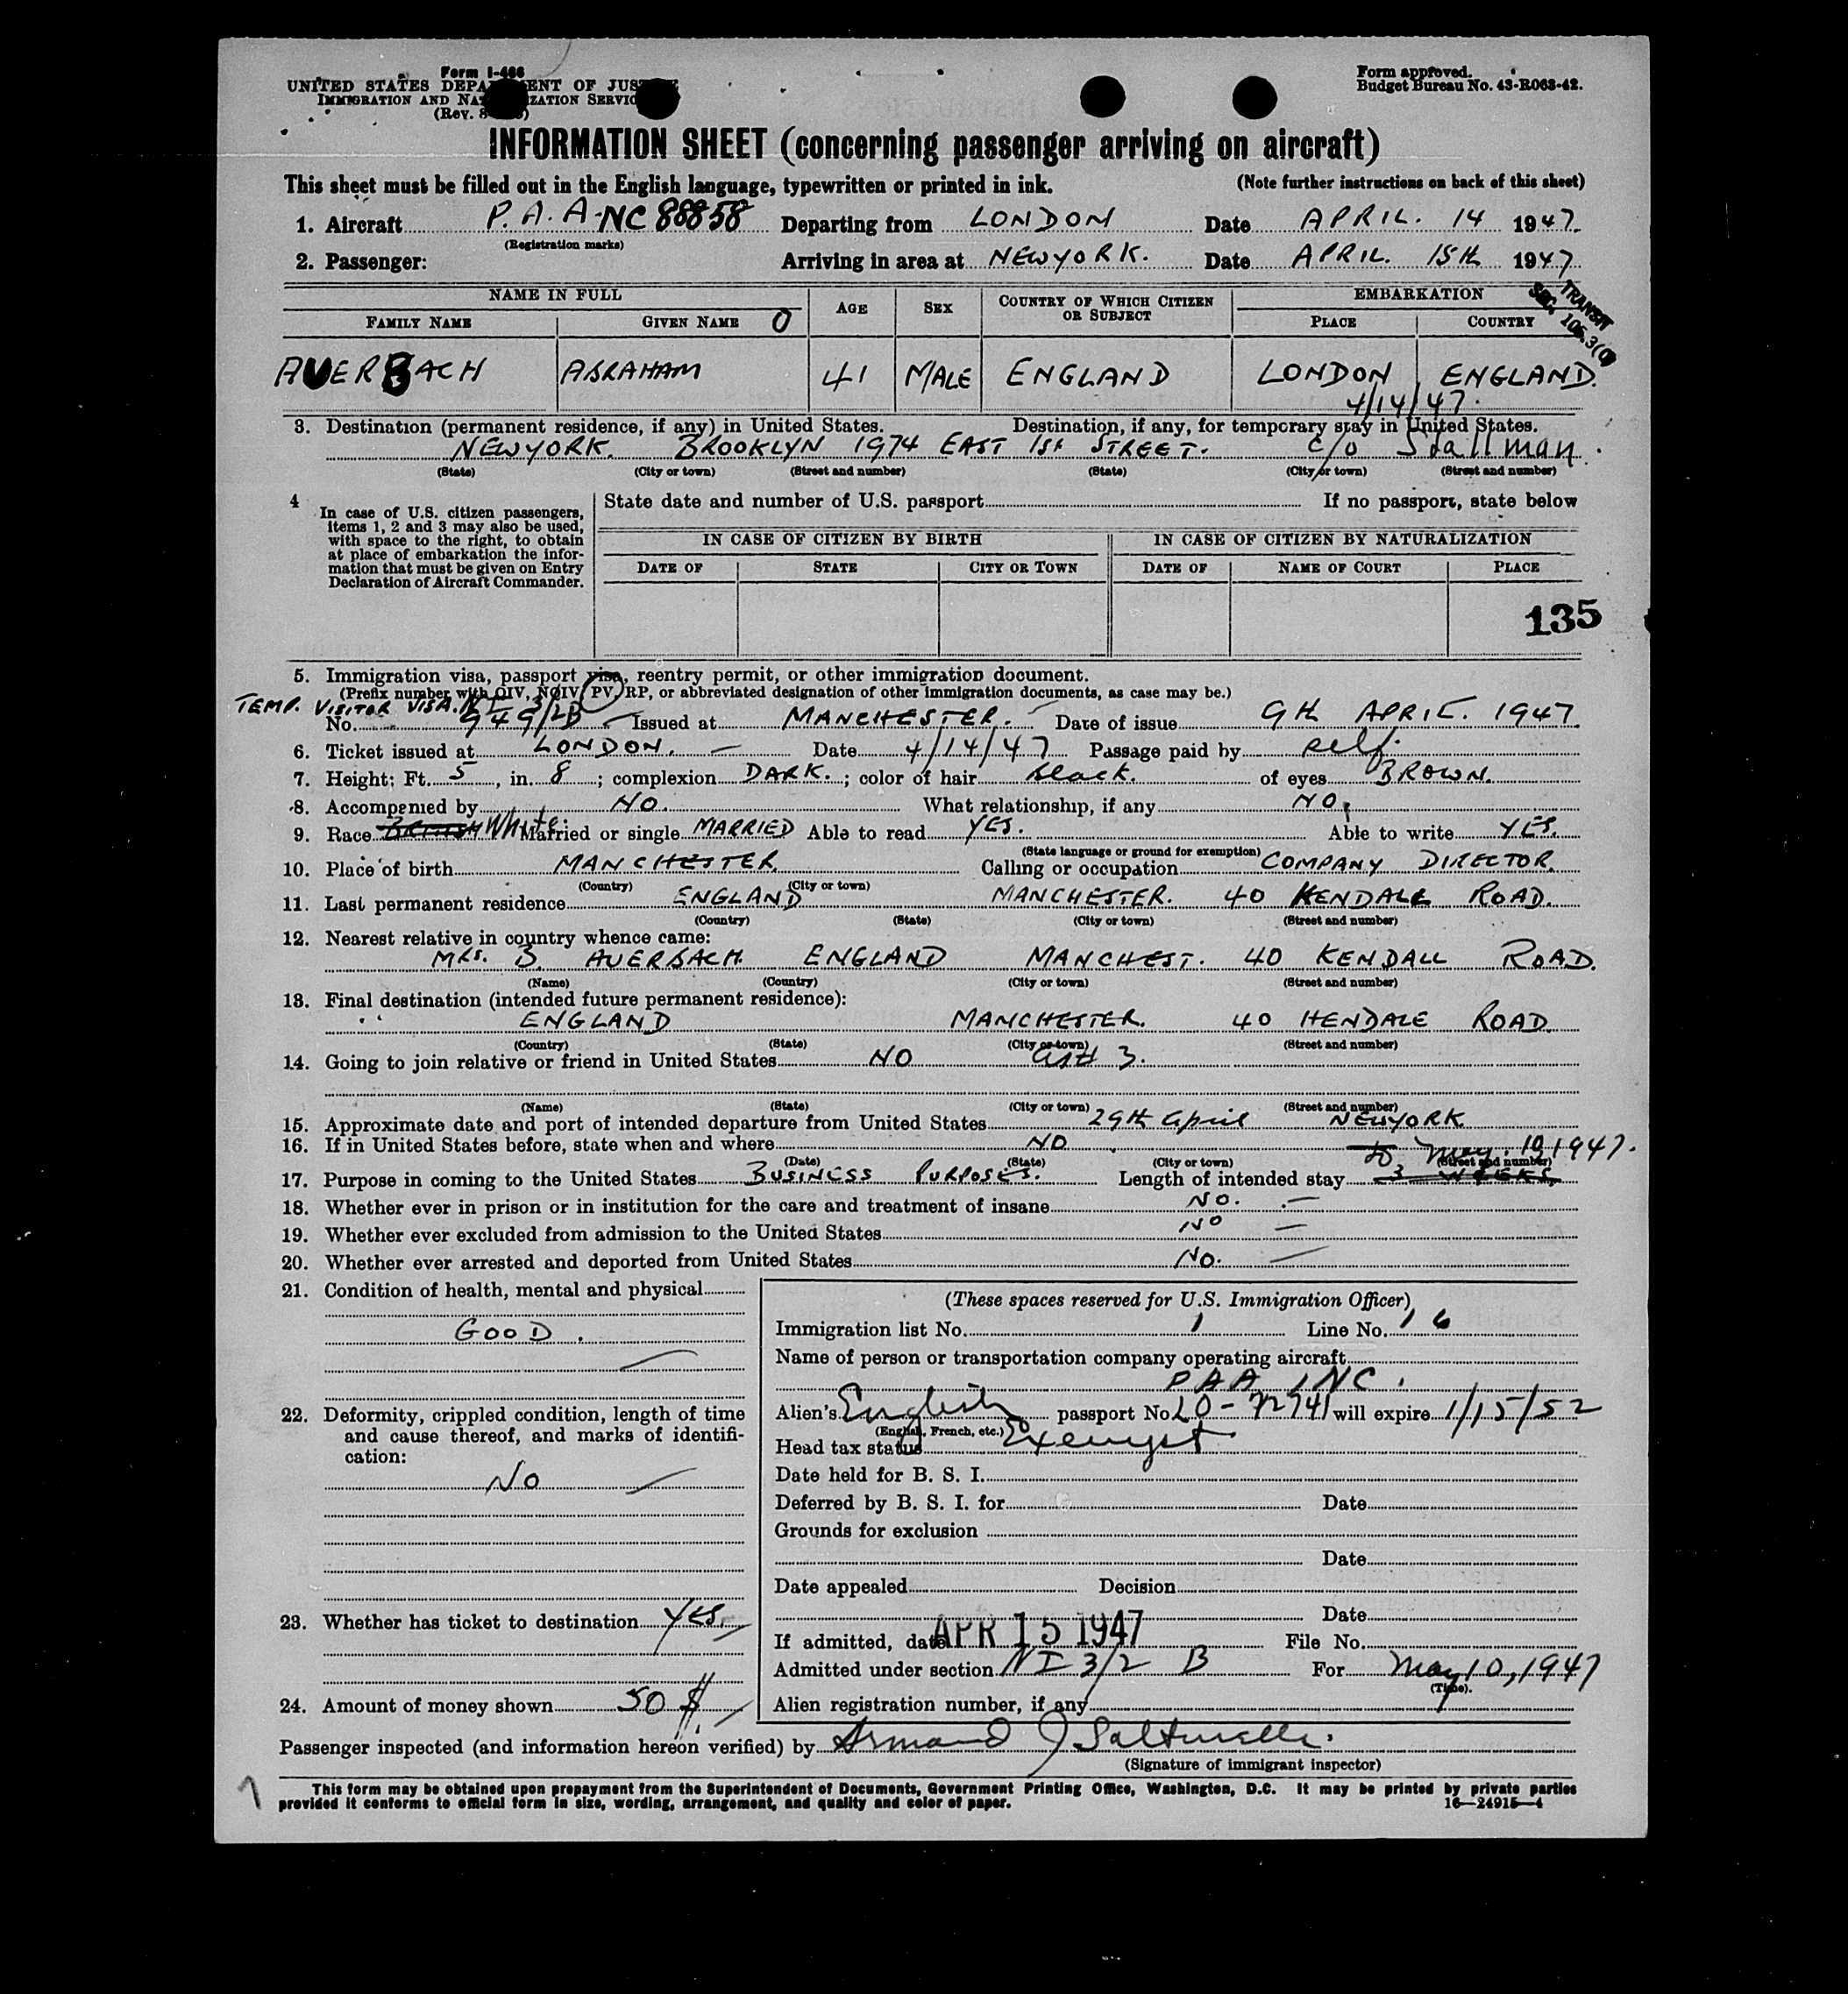 Form I-466
UNITED STATES DEPARTMENT OF JUSTICE
IMMIGRATION AND NATURALIZATION SERVICE
(Rev. 8
Form approved.
Budget Bureau No. 43-R063-42.
INFORMATION SHEET (concerning passenger arriving on aircraft)
This sheet must be filled out in the English language, typewritten or printed in ink. (Note further instructions on back of this sheet)
1. Aircraft P.A.A-NC 88858 Departing from LONDON Date APRIL. 14 1947.
(Registration marks)
2. Passenger: Arriving in area at NEWYORK. Date APRIL. 15th 1947
NAME IN FULL AGE SEX COUNTRY OF WHICH CITIZEN OR SUBJECT EMBARKATION
FAMILY NAME GIVEN NAME 0 PLACE COUNTRY
TRANSIT
SEC. 105.3(
AUERBACH ABRAHAM 41 MALE ENGLAND LONDON ENGLAND.
4/14/47.
3. Destination (permanent residence, if any) in United States. Destination, if any, for temporary stay in United States.
NEWYORK. BROOKLYN 1974 EAST 1St STREET. c/o Stallman.
(State) (City or town) (Street and number) (State) (City or town) (Street and number)
4 In case of U.S. citizen passengers, items 1, 2 and 3 may also be used, with space to the right, to obtain at place of embarkation the information that must be given on Entry Declaration of Aircraft Commander.
State date and number of U.S. passport If no passport, state below
IN CASE OF CITIZEN BY BIRTH IN CASE OF CITIZEN BY NATURALIZATION
DATE OF STATE CITY OR TOWN DATE OF NAME OF COURT PLACE
135
5. Immigration visa, passport visa, reentry permit, or other immigration document.
(Prefix number with QIV, NQIV, PV, RP, or abbreviated designation of other immigration documents, as case may be.)
TEMP. VISITOR VISA. NI 3
No. 949/2B Issued at MANCHESTER. Date of issue 9th APRIL. 1947.
6. Ticket issued at LONDON. Date 4/14/47 Passage paid by self.
7. Height: Ft. 5, in. 8; complexion DARK.; color of hair black. of eyes BROWN.
8. Accompenied by NO. What relationship, if any NO.
9. Race BRITISH White. Married or single MARRIED Able to read YES. Able to write YES.
(State language or ground for exemption)
10. Place of birth MANCHESTER. Calling or occupation COMPANY DIRECTOR.
(Country) (City or town)
11. Last permanent residence ENGLAND MANCHESTER. 40 KENDALE ROAD.
(Country) (State) (City or town) (Street and number)
12. Nearest relative in country whence came:
MRS. B. AUERBACH. ENGLAND MANCHEST. 40 KENDALL ROAD.
(Name) (Country) (City or town) (Street and number)
13. Final destination (intended future permanent residence):
ENGLAND MANCHESTER. 40 HENDALE ROAD.
(Country) (State) (City or town) (Street and number)
14. Going to join relative or friend in United States NO 3.
(Name) (State) (City or town) (Street and number)
15. Approximate date and port of intended departure from United States 29th April NEWYORK
16. If in United States before, state when and where NO
(Date) (State) (City or town) (Street and number)
to May. 10, 1947.
17. Purpose in coming to the United States BUSINESS PURPOSES. Length of intended stay 3 WEEKS.
18. Whether ever in prison or in institution for the care and treatment of insane NO.
19. Whether ever excluded from admission to the United States NO
20. Whether ever arrested and deported from United States NO.
21. Condition of health, mental and physical
GOOD.
22. Deformity, crippled condition, length of time and cause thereof, and marks of identification:
NO
23. Whether has ticket to destination YES.
24. Amount of money shown 50 $.
(These spaces reserved for U.S. Immigration Officer)
Immigration list No. 1 Line No. 16
Name of person or transportation company operating aircraft
PAA INC.
Alien's English passport No. LO-72741 will expire 1/15/52
(English, French, etc.)
Head tax status Exempt
Date held for B. S. I.
Deferred by B. S. I. for Date
Grounds for exclusion
Date
Date appealed Decision
Date
If admitted, date APR 15 1947 File No.
Admitted under section NI 3/2 B For May 10, 1947
(Time).
Alien registration number, if any
Passenger inspected (and information hereon verified) by Armand J
(Signature of immigrant inspector)
This form may be obtained upon prepayment from the Superintendent of Documents, Government Printing Office, Washington, D.C. It may be printed by private parties
provided it conforms to official form in size, wording, arrangement, and quality and color of paper. 16—24915—4